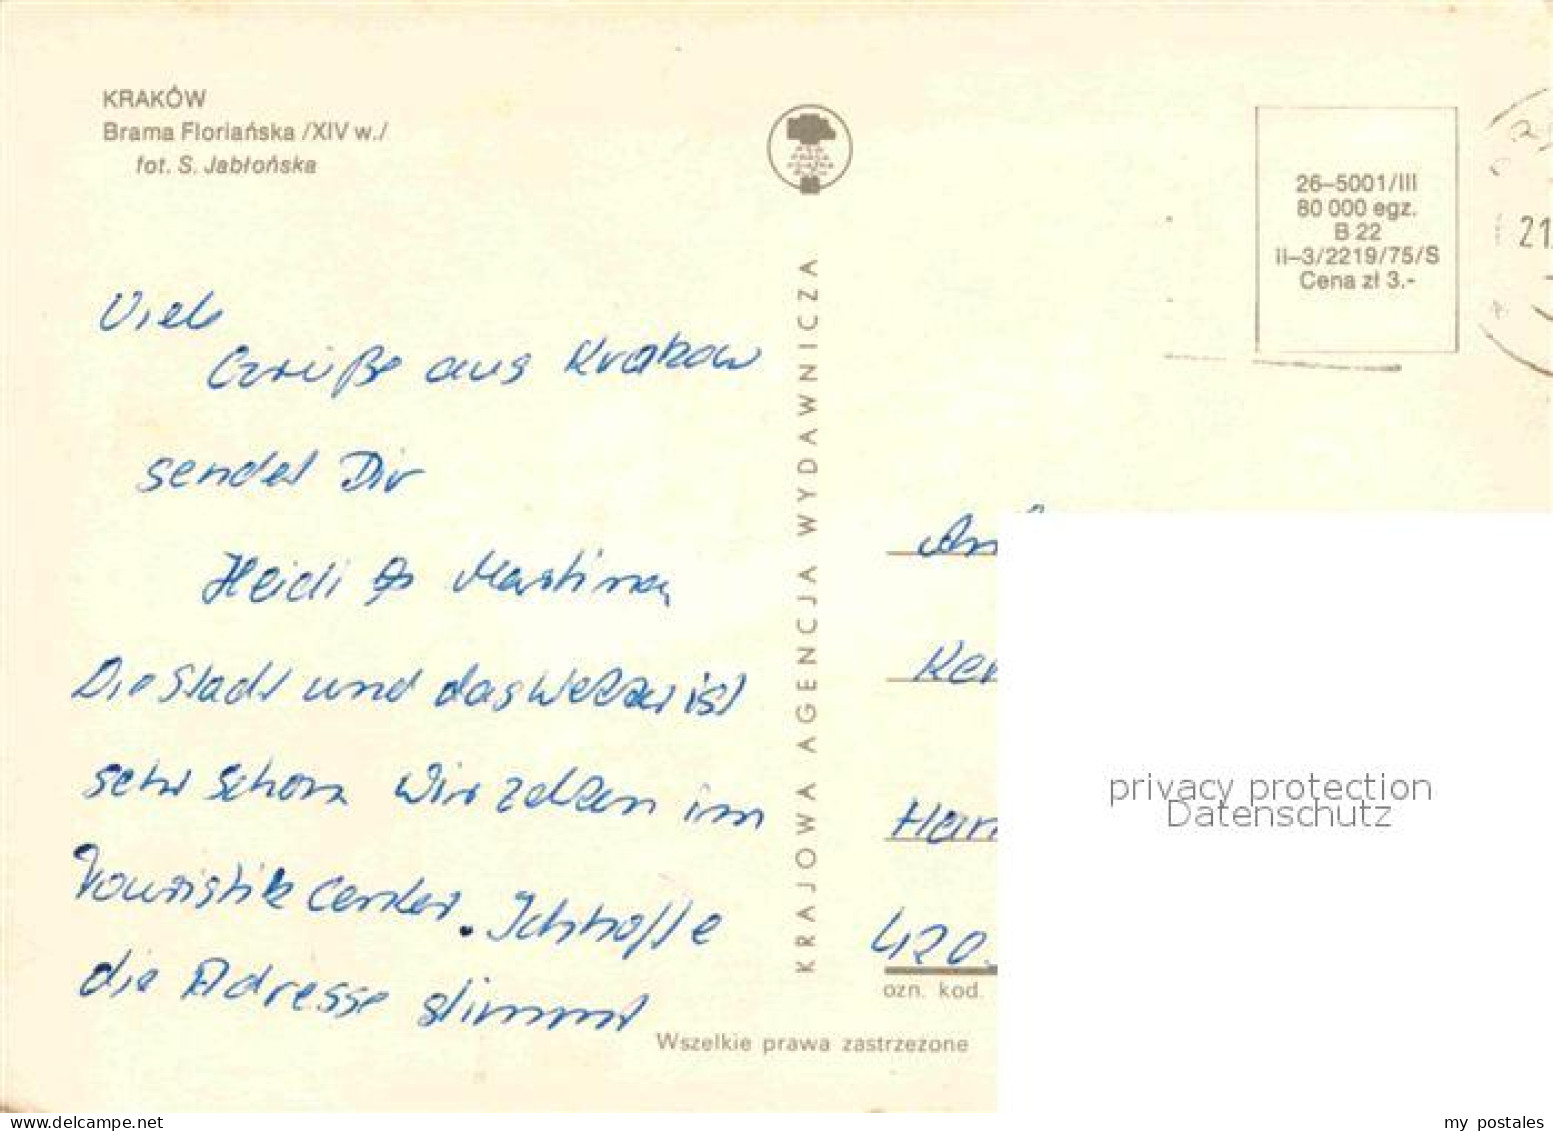 KRAKÓW
Brama Floriańska /XIV w./
fot. S. Jabłońska
26–5001/III
80 000 egz.
B 22
II–3/2219/75/S
Cena zł 3.-
21
Viele
Grüße aus Krakow
sendet Dir
Heidi & Martina
Die Stadt und das Wetter ist
sehr schön Wir zelten im
Touristik Center. Ich hoffe
die Adresse stimmt
KRAJOWA AGENCJA WYDAWNICZA
420
ozn. kod.
Wszelkie prawa zastrzeżone
privacy protection
Datenschutz
www.delcampe.net
my_postales